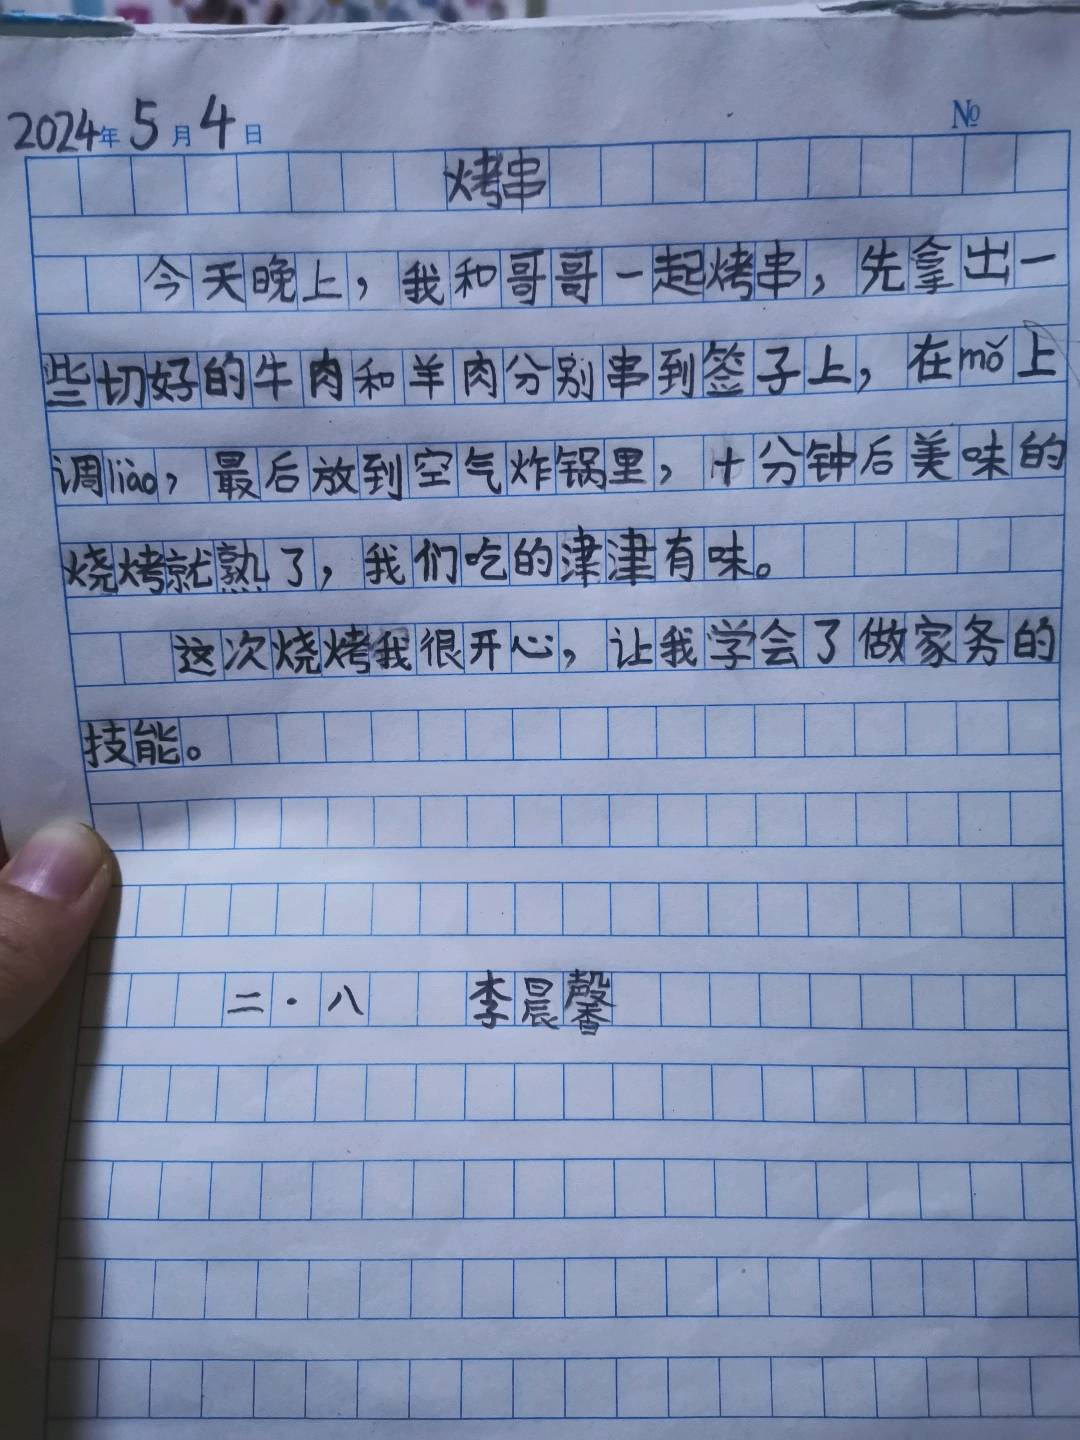 2024年5月4日 №
烤串
今天晚上，我和哥哥一起烤串，先拿出一
些切好的牛肉和羊肉分别串到签子上，在mǒ上
调liào，最后放到空气炸锅里，十分钟后美味的
烧烤就熟了，我们吃的津津有味。
这次烧烤我很开心，让我学会了做家务的
技能。
二·八 李晨馨